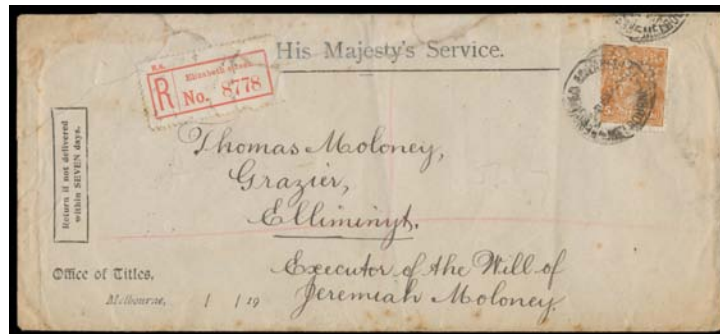 His Majesty's Service.
R No. 8778
Return if not delivered
within SEVEN days.
Thomas Moloney,
Grazier,
Elliminyt.
Executor of the Will of
Jeremiah Moloney.
Office of Titles,
Melbourne, / / 19